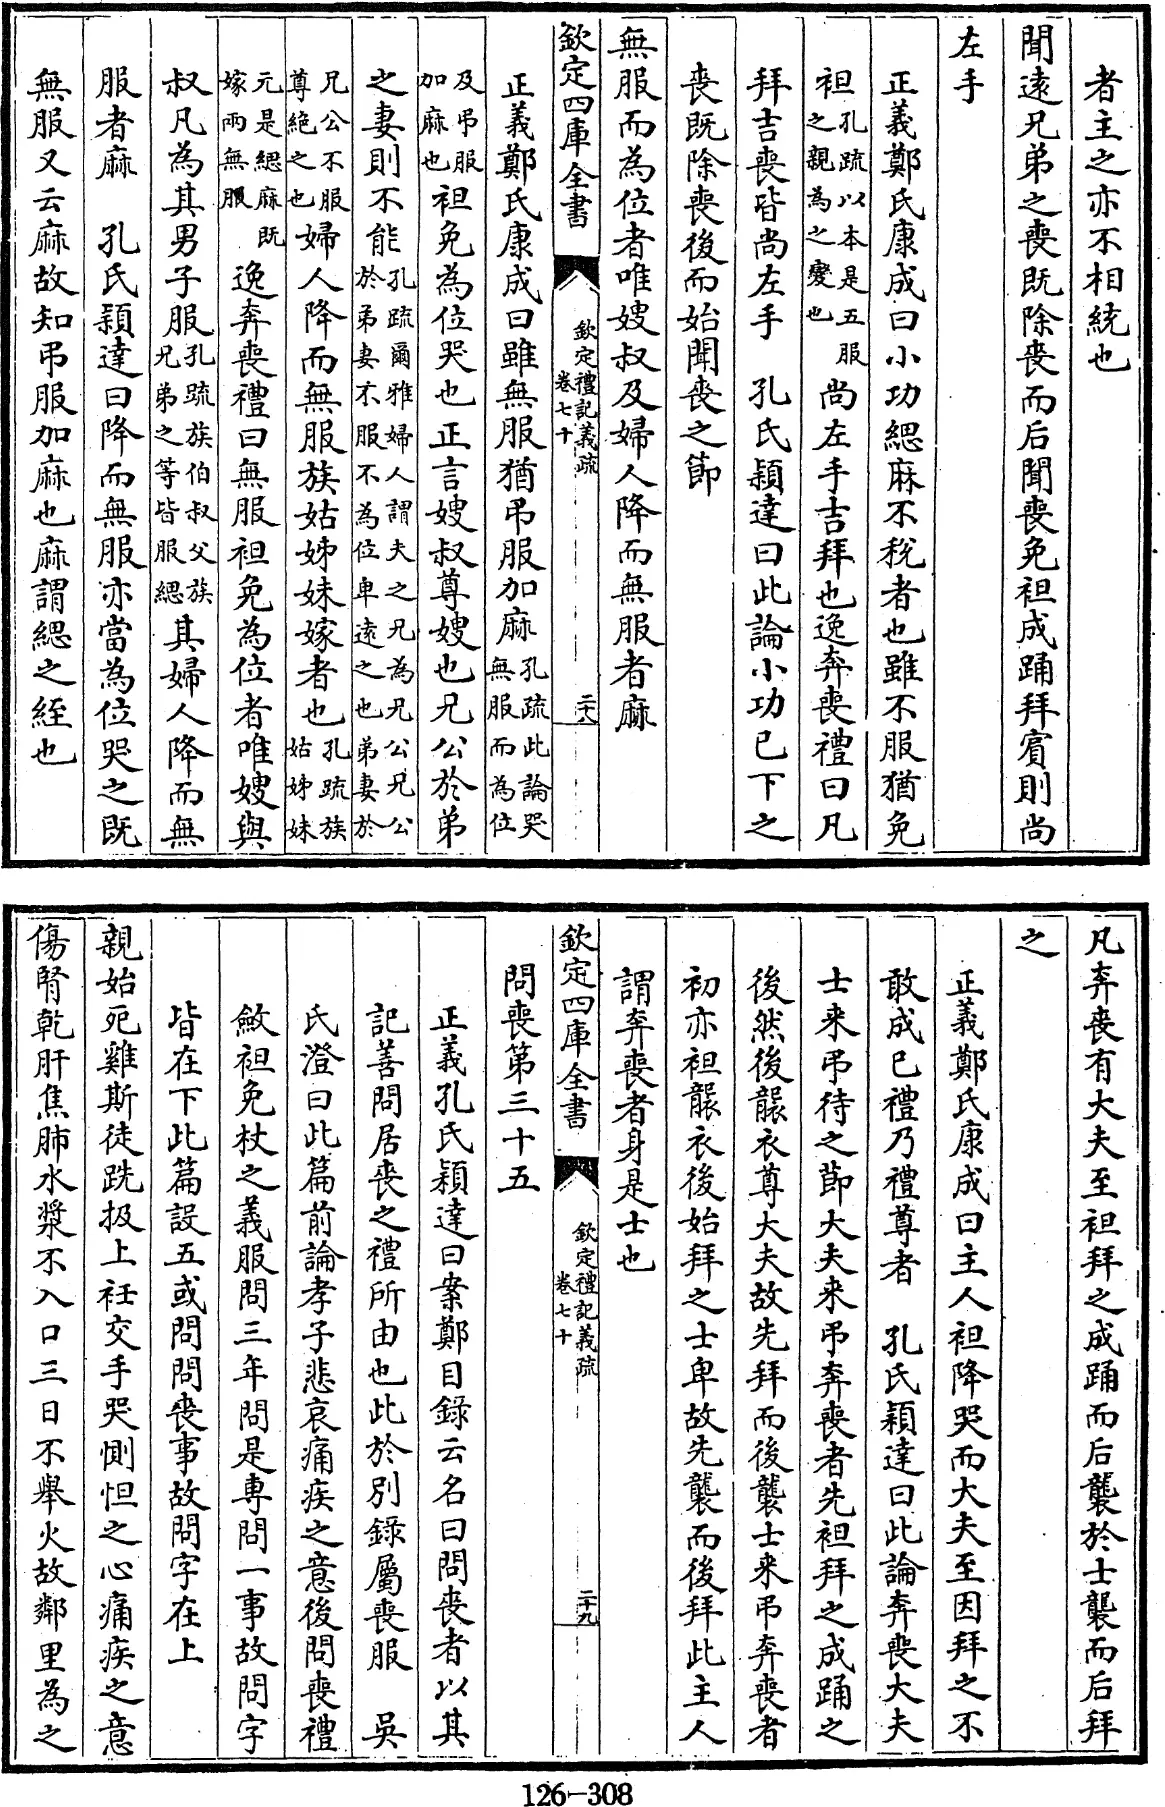 者主之亦不相統也
聞遠兄弟之喪既除喪而后聞喪免袒成踊拜賓則尚
左手
正義鄭氏康成曰小功緦麻不稅者也雖不服猶免
袒孔疏以本是五服之親為之變也尚左手吉拜也逸奔喪禮曰凡
拜吉喪皆尚左手　孔氏穎達曰此論小功已下之
喪既除喪後而始聞喪之節
無服而為位者唯嫂叔及婦人降而無服者麻
欽定四庫全書　欽定禮記義疏卷七十　二十八
正義鄭氏康成曰雖無服猶弔服加麻孔疏此論哭無服而為位
及弔服加麻也袒免為位哭也正言嫂叔尊嫂也兄公於弟
之妻則不能孔疏爾雅婦人謂夫之兄為兄公兄公於弟妻不服不為位卑遠之也弟妻於
兄公不服尊絶之也婦人降而無服族姑姊妹嫁者也孔疏族姑姊妹
元是緦麻既嫁兩無服逸奔喪禮曰無服袒免為位者唯嫂與
叔凡為其男子服孔疏族伯叔父族兄弟之等皆服緦其婦人降而無
服者麻　孔氏穎達曰降而無服亦當為位哭之既
無服又云麻故知弔服加麻也麻謂緦之絰也
凡奔喪有大夫至袒拜之成踊而后襲於士襲而后拜
之
正義鄭氏康成曰主人袒降哭而大夫至因拜之不
敢成已禮乃禮尊者　孔氏穎達曰此論奔喪大夫
士來弔待之節大夫來弔奔喪者先袒拜之成踊之
後然後襲衣尊大夫故先拜而後襲士來弔奔喪者
初亦袒襲衣後始拜之士卑故先襲而後拜此主人
謂奔喪者身是士也
欽定四庫全書　欽定禮記義疏卷七十　二十九
問喪第三十五
正義孔氏穎達曰案鄭目錄云名曰問喪者以其
記善問居喪之禮所由也此於别錄屬喪服　吳
氏澄曰此篇前論孝子悲哀痛疾之意後問喪禮
斂袒免杖之義服問三年問是專問一事故問字
皆在下此篇設五或問問喪事故問字在上
親始死雞斯徒跣扱上衽交手哭惻怛之心痛疾之意
傷腎乾肝焦肺水漿不入口三日不舉火故鄰里為之
126-308